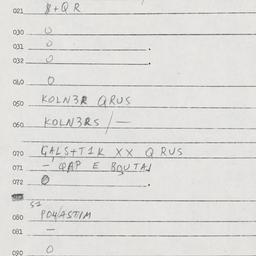 021 8+QR
030 0
031 0
032 0
040 0
050 KOLN3R QRUS
060 KOLN3RS/—
070 GALS+T1K XX QRUS
071 -
072 0
080 PO4/ASTIM
081 —
090 0